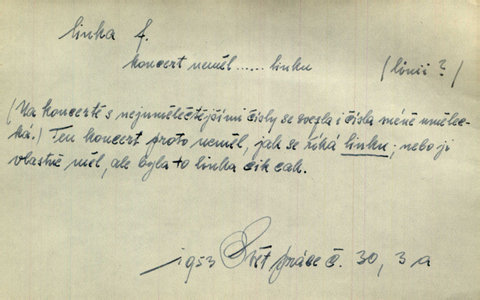 linka f.
koncert neměl ...... linku (linii ?)
(Na koncertě s nejumělečtějšími čísly se svezla i čísla méně umělec-
ká.) Ten koncert proto neměl, jak se říká linku; nebo ji
vlastně měl, ale byla to linka cik cak.
1953 Svět práce č. 30, 3 a